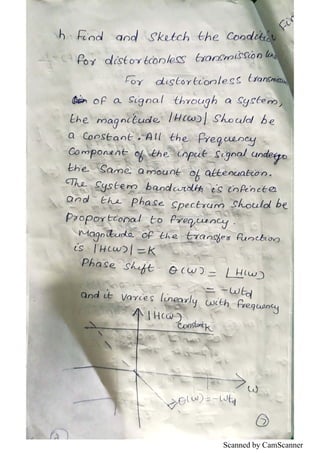 h. Find and Sketch the Condition
for distortionless transmission
For distortionless transmission
of a Signal through a System,
the magnitude |H(ω)| Should be
a Constant. All the Frequency
Component of the input Signal undergo
the Same amount of attenuation.
The System bandwidth is infinite
and the Phase Spectrum Should be
Proportional to Frequency.
Magnitude of the transfer function
is |H(ω)| = K
Phase Shift θ(ω) = ∟H(ω)
= -ωtd
and it varies linearly with Frequency
|H(ω)
Constant K
ω
θ(ω) = -ωtd
7
Scanned by CamScanner